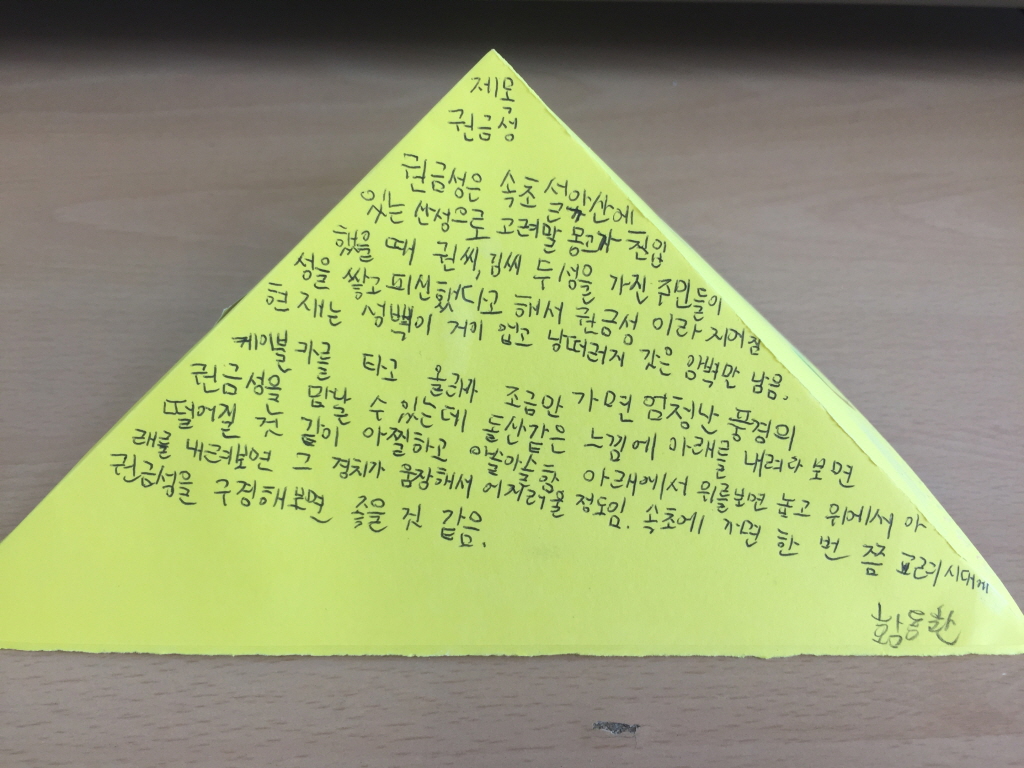 제목
권금성
권금성은 속초 설악산에
있는 산성으로 고려말 몽고가 진입
했을 때 권씨, 김씨 두 성을 가진 주민들이
성을 쌓고 피신했다고 해서 권금성 이라 지어짐
현재는 성벽이 거이 없고 낭떠러지 같은 암벽만 남음.
케이블카를 타고 올라가 조금만 가면 엄청난 풍경의
권금성을 만날 수 있는데 돌산같은 느낌에 아래를 내려다 보면
떨어질 것 같이 아찔하고 아슬아슬함 아래에서 위를보면 높고 위에서 아
래를 내려보면 그 경치가 웅장해서 어지러울 정도임. 속초에 가면 한 번 쯤 고려시대에
권금성을 구경해보면 좋을 것 같음.